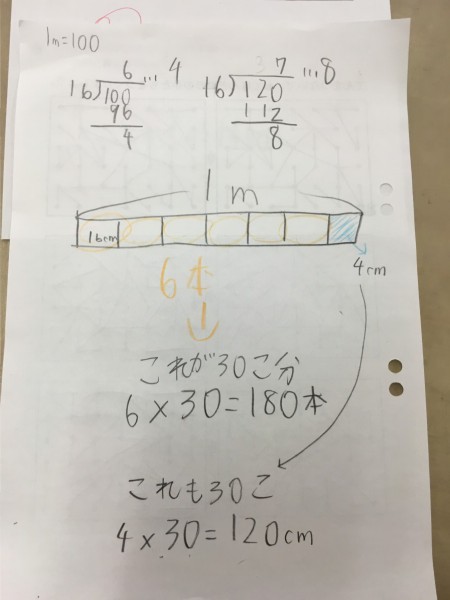 1m=100
6...4
16)100
96
4
37...8
16)120
112
8
1m
16cm
4cm
6本
これが30こ分
6×30=180本
これも30こ
4×30=120cm